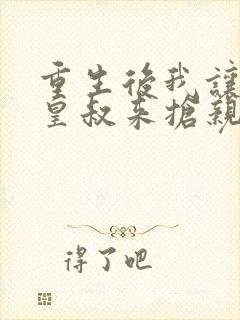 重生後我讓
皇叔來搶親
得了吧